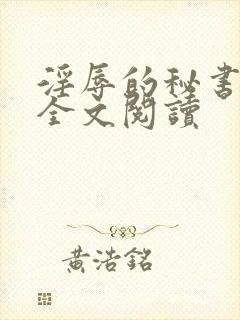 淫辱的秘書
全文閱讀
黃浩銘